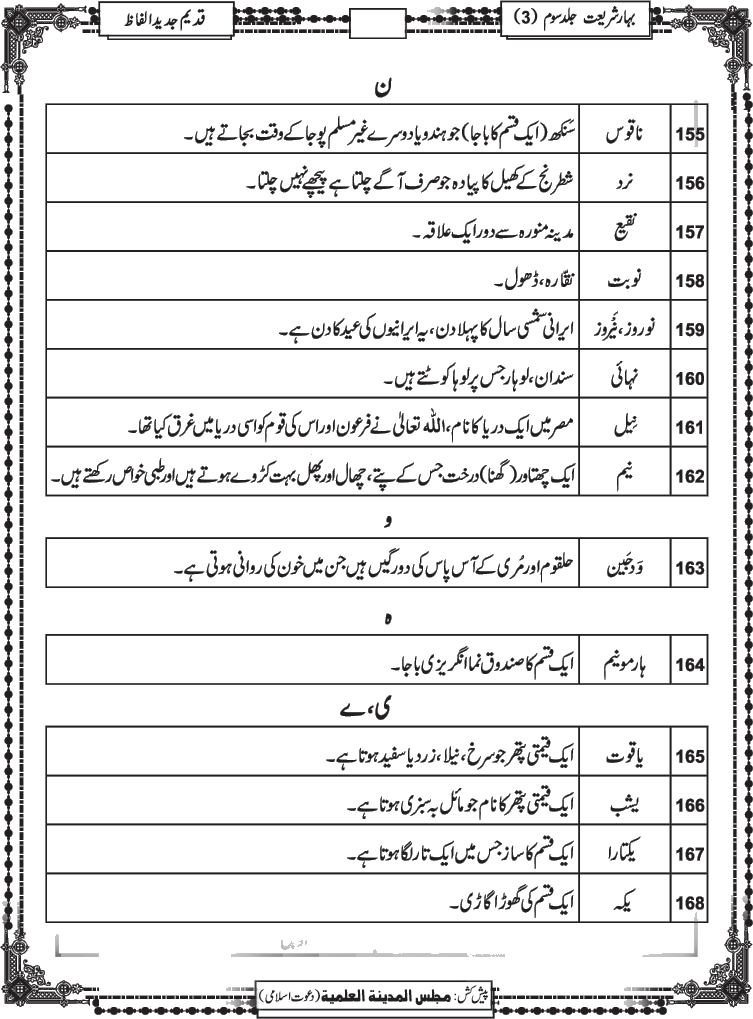 بہارِشریعت جلدسوم (3)
قدیم جدیدالفاظ
ن
155 ناقوس سَنکھ (ایک قسم کا باجا) جو ہندو یا دوسرے غیر مسلم پوجا کے وقت بجاتے ہیں۔
156 نرد شطرنج کے کھیل کا پیادہ جو صرف آگے چلتا ہے پیچھے نہیں چلتا۔
157 نقیع مدینہ منورہ سے دور ایک علاقہ۔
158 نوبت نقارہ، ڈھول۔
159 نوروز، نَیروز ایرانی شمسی سال کا پہلا دن، یہ ایرانیوں کی عید کا دن ہے۔
160 نہائی سندان، لوہار جس پر لوہا کوٹتے ہیں۔
161 نِیل مصر میں ایک دریا کا نام، اللہ تعالیٰ نے فرعون اور اس کی قوم کو اسی دریا میں غرق کیا تھا۔
162 نیم ایک چھتاور (گھنا) درخت جس کے پتے، چھال اور پھل بہت کڑوے ہوتے ہیں اور طبی خواص رکھتے ہیں۔
و
163 وَدجَین حلقوم اور مُری کے آس پاس کی دو رگیں ہیں جن میں خون کی روانی ہوتی ہے۔
ہ
164 ہارمونیم ایک قسم کا صندوق نما انگریزی باجا۔
ی، ے
165 یاقوت ایک قیمتی پتھر جو سرخ، نیلا، زرد یا سفید ہوتا ہے۔
166 یشب ایک قیمتی پتھر کا نام جو مائل بہ سبزی ہوتا ہے۔
167 یکتارا ایک قسم کا ساز جس میں ایک تار لگا ہوتا ہے۔
168 یکہ ایک قسم کی گھوڑا گاڑی۔
پیش کش: مجلس المدینۃ العلمیۃ (دعوت اسلامی)